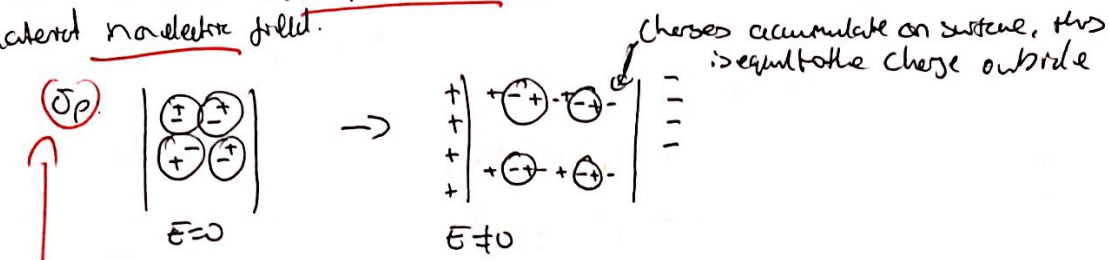 no electric field.
Charges accumulate on surface, this
is equal to the charge outside
σp.
E=0
E≠0